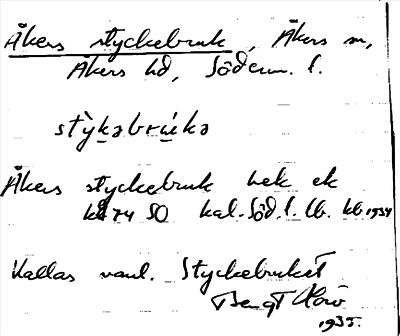 Åkers styckebruk, Åkers sn,
Åkers hd, Söderm. l.
stỳkəbrúkə
Åkers styckebruk bek ek
bl 74 SO kal. Söd. l. lb. kb 1934
Kallas vanl. Styckebruket
Bengt
1935.